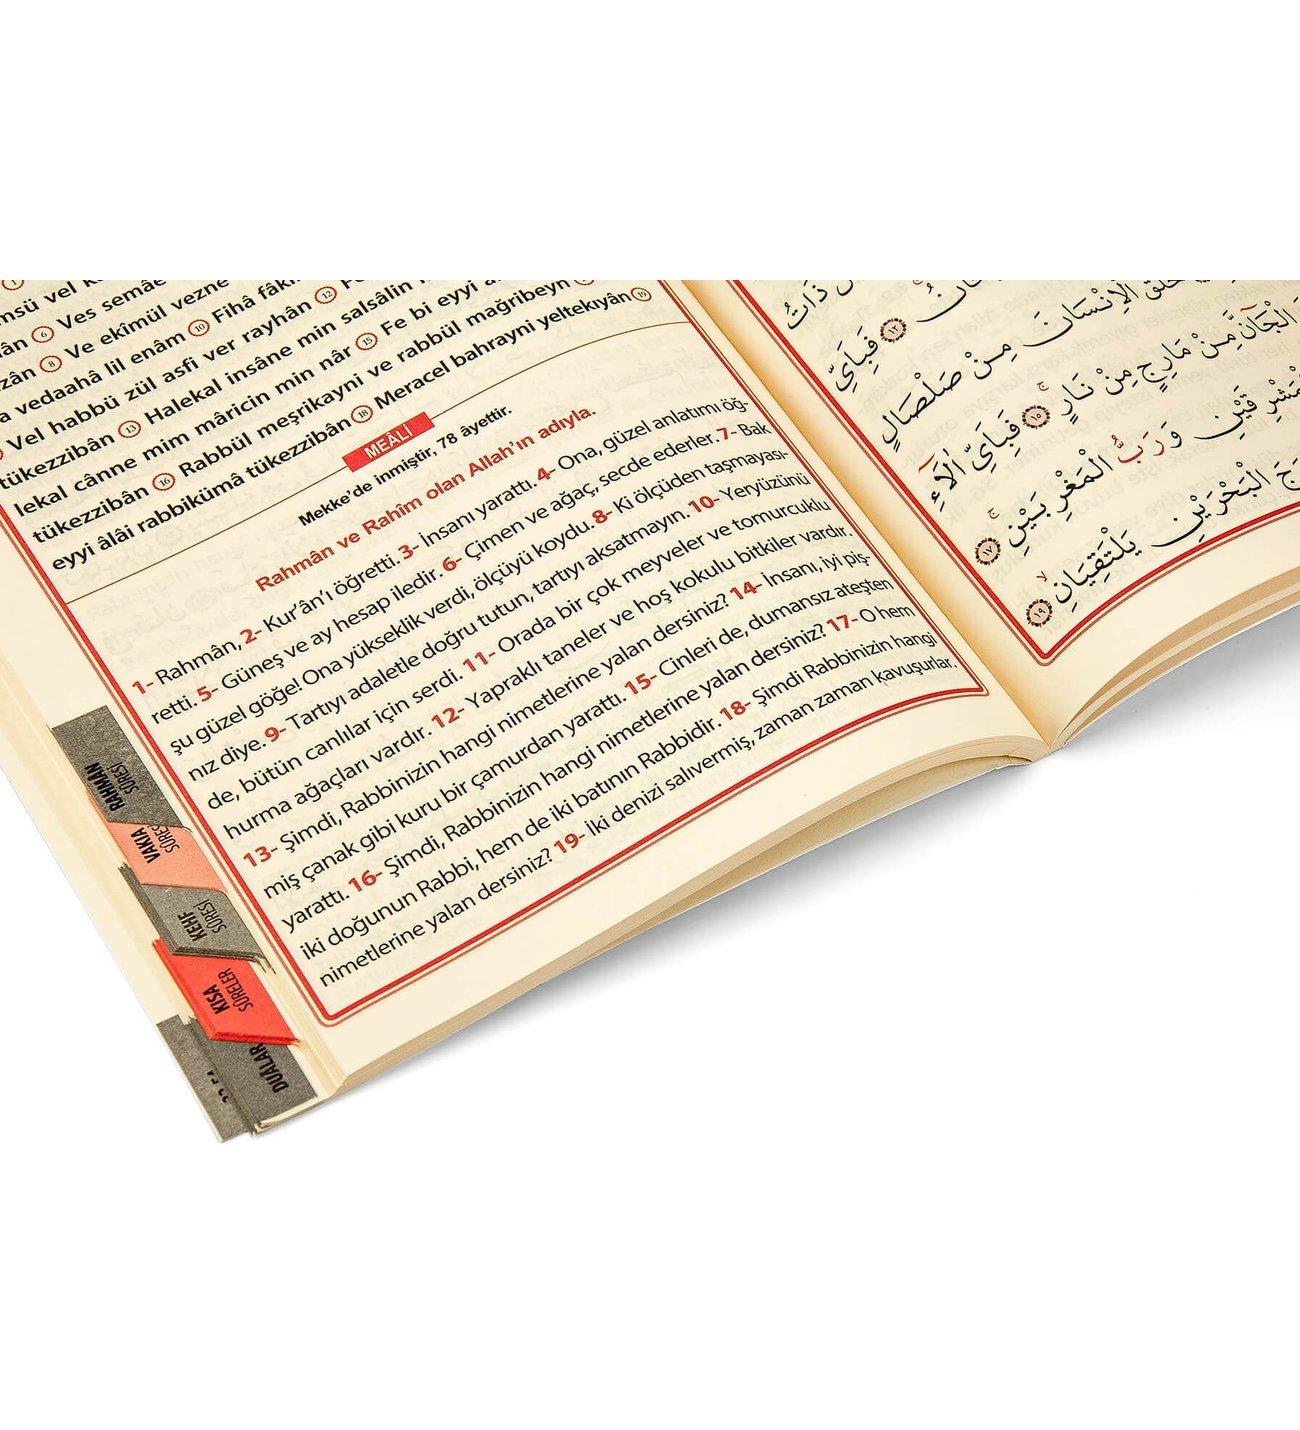 msü vel
Ves semâe
Ve ekîmül vezne
vedaahâ lil enâm 10 Fîhâ fâki
Vel habbü zül asfi ver rayhân 12
tükezzibân 13 Halekal insâne min salsâlin
lekal cânne mim mâricin min nâr 15 Fe bi eyyi
tükezzibân 16 Rabbül meşrikayni ve rabbül mağribeyn
eyyi âlâi rabbikümâ tükezzibân 18 Meracel bahrayni yeltekıyân 19
MEÂLİ
Mekke'de inmiştir, 78 âyettir.
Rahmân ve Rahîm olan Allah'ın adıyla.
1- Rahmân, 2- Kur'ân'ı öğretti. 3- İnsanı yarattı. 4- Ona, güzel anlatımı öğ-
retti. 5- Güneş ve ay hesap iledir. 6- Çimen ve ağaç, secde ederler. 7- Bak
şu güzel göğe! Ona yükseklik verdi, ölçüyü koydu. 8- Ki ölçüden taşmayası-
nız diye. 9- Tartıyı adaletle doğru tutun, tartıyı aksatmayın. 10- Yeryüzünü
de, bütün canlılar için serdi. 11- Orada bir çok meyveler ve tomurcuklu
hurma ağaçları vardır. 12- Yapraklı taneler ve hoş kokulu bitkiler vardır.
13- Şimdi, Rabbinizin hangi nimetlerine yalan dersiniz? 14- İnsanı, iyi piş-
miş çanak gibi kuru bir çamurdan yarattı. 15- Cinleri de, dumansız ateşten
yarattı. 16- Şimdi, Rabbinizin hangi nimetlerine yalan dersiniz? 17- O hem
iki doğunun Rabbi, hem de iki batının Rabbidir. 18- Şimdi Rabbinizin hangi
nimetlerine yalan dersiniz? 19- İki denizi salıvermiş, zaman zaman kavuşurlar.
RAHMAN
SÛRESİ
VAKIA
SÛRESİ
KEHF
SÛRESİ
KISA
SÛRELER
DUÂLAR
ذَاتُ
١٢ فَبِاَيِّ
خَلَقَ الْاِنْسَانَ مِنْ صَلْصَالٍ
الْجَٓانَّ مِنْ مَارِجٍ مِنْ نَارٍ ١٥ فَبِاَيِّ اٰلَٓاءِ
وَرَبُّ الْمَغْرِبَيْنِ ١٧
الْبَحْرَيْنِ يَلْتَقِيَانِ ١٩